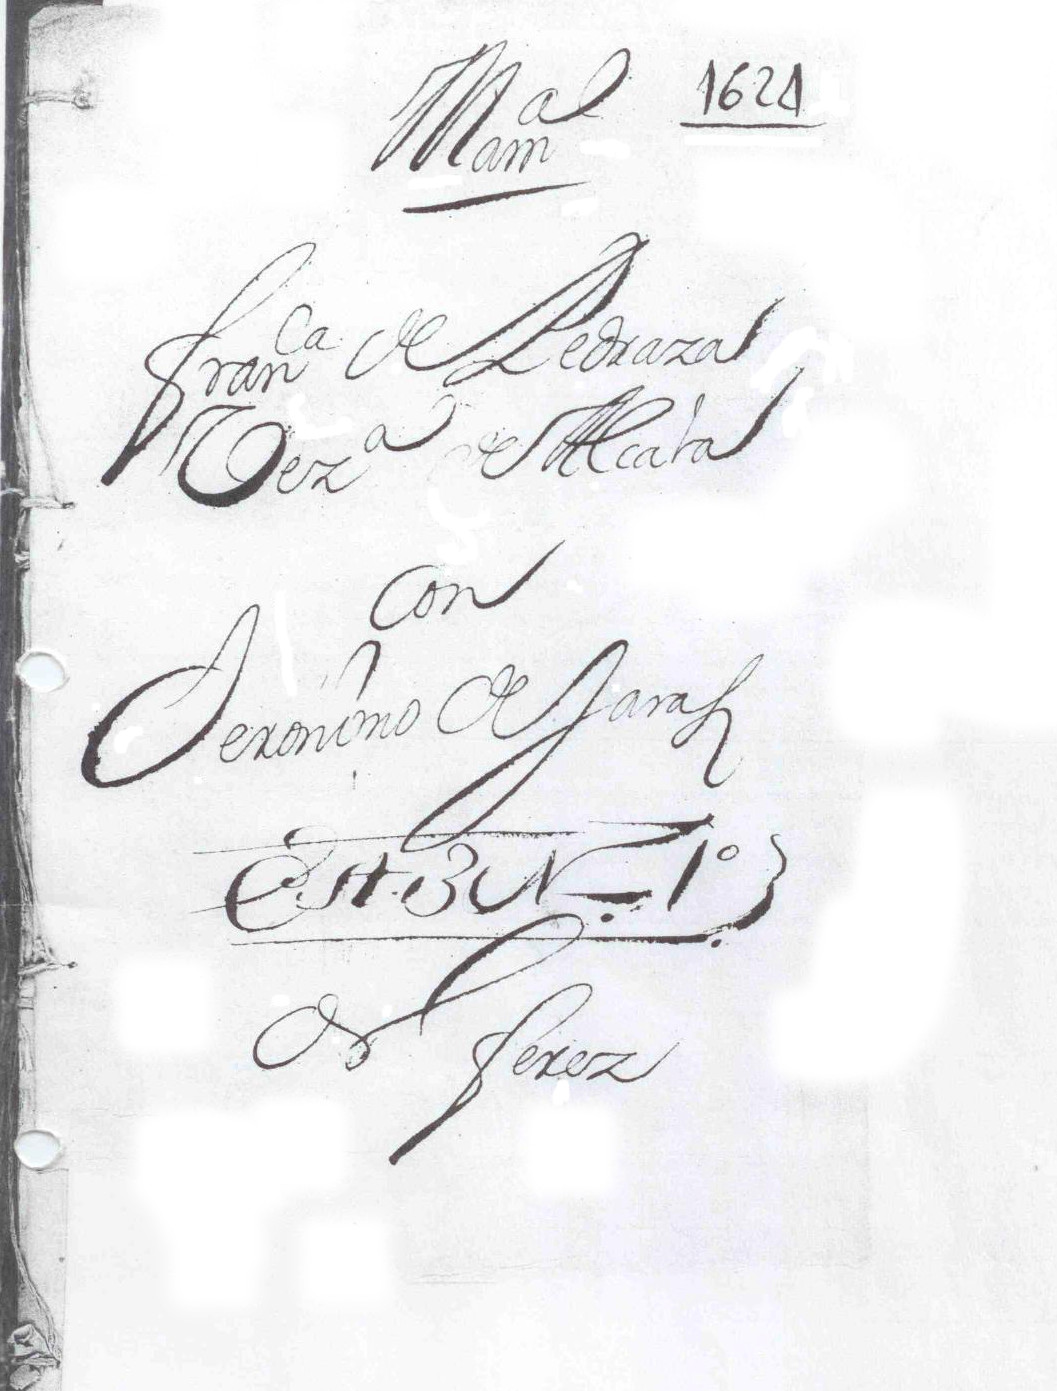 Mam al 1621
Franca de Pedraza
Veza de Alcala
Con
Jeronimo de Jaras
Est. 3 N. 1º
Perez